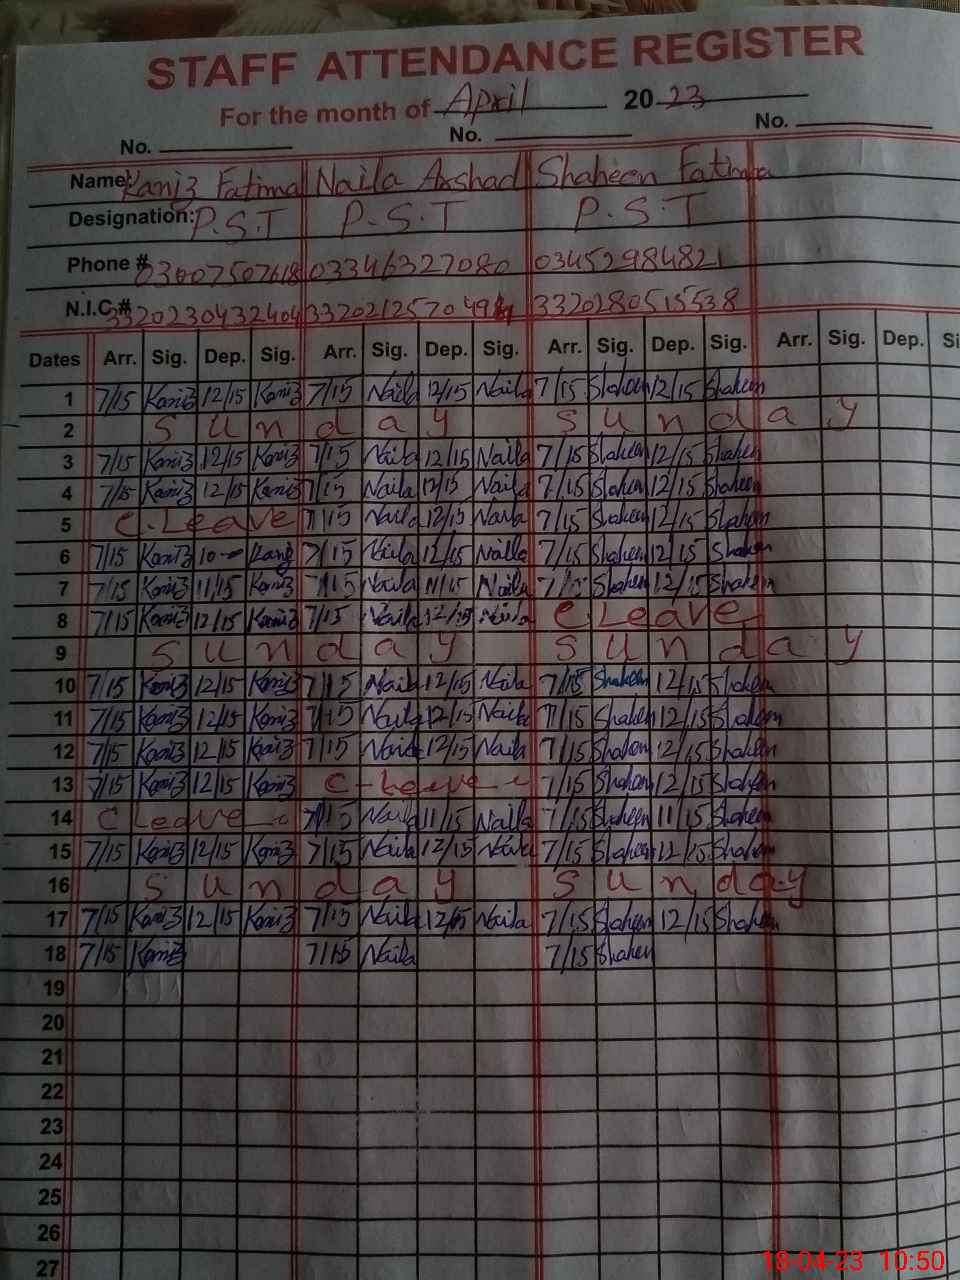 STAFF ATTENDANCE REGISTER
For the month of April 2023
No. No. No.
Name: Kaniz Fatima Naila Arshad Shaheen Fatima
Designation: P.S.T P.S.T P.S.T
Phone # 03007507618 03346327080 03452984821
N.I.C.# 3320230432404 3320280515538
Dates Arr. Sig. Dep. Sig. Arr. Sig. Dep. Sig. Arr. Sig. Dep. Sig. Arr. Sig. Dep. Si
1 7/15 Kaniz 12/15 Kaniz 7/15 Naila 12/15 Naila 7/15 Shaheen 12/15 Shaheen
2 Sunday Sunday
3 7/15 Kaniz 12/15 Kaniz 7/15 Naila 12/15 Naila 7/15 Shaheen 12/15 Shaheen
4 7/15 Kaniz 12/15 Kaniz 7/15 Naila 12/15 Naila 7/15 Shaheen 12/15 Shaheen
5 C.Leave 7/15 Naila 12/15 Naila 7/15 Shaheen 12/15 Shaheen
6 7/15 Kaniz 10 Kaniz 7/15 Naila 12/15 Naila 7/15 Shaheen 12/15 Shaheen
7 7/15 Kaniz 11/15 Kaniz 7/15 Naila 11/15 Naila Shaheen 12/15 Shaheen
8 7/15 Kaniz 12/15 Kaniz 7/15 Naila 12/15 Naila C.Leave
9 Sunday Sunday
10 7/15 Kaniz 12/15 Kaniz 7/15 Naila 12/15 Naila 7/15 Shaheen 12/15 Shaheen
11 7/15 Kaniz 12/15 Kaniz 7/15 Naila 12/15 Naila 7/15 Shaheen 12/15 Shaheen
12 7/15 Kaniz 12/15 Kaniz 7/15 Naila 12/15 Naila 7/15 Shaheen 12/15 Shaheen
13 7/15 Kaniz 12/15 Kaniz C-Leave 7/15 Shaheen 12/15 Shaheen
14 C Leave 7/15 Naila 11/15 Naila 7/15 Shaheen 11/15 Shaheen
15 7/15 Kaniz 12/15 Kaniz 7/15 Naila 12/15 Naila 7/15 Shaheen 12/15 Shaheen
16 Sunday Sunday
17 7/15 Kaniz 12/15 Kaniz 7/15 Naila 12/15 Naila 7/15 Shaheen 12/15 Shaheen
18 7/15 Kaniz 7/15 Naila 7/15 Shaheen
19
20
21
22
23
24
25
26
27
18-04-23 10:50